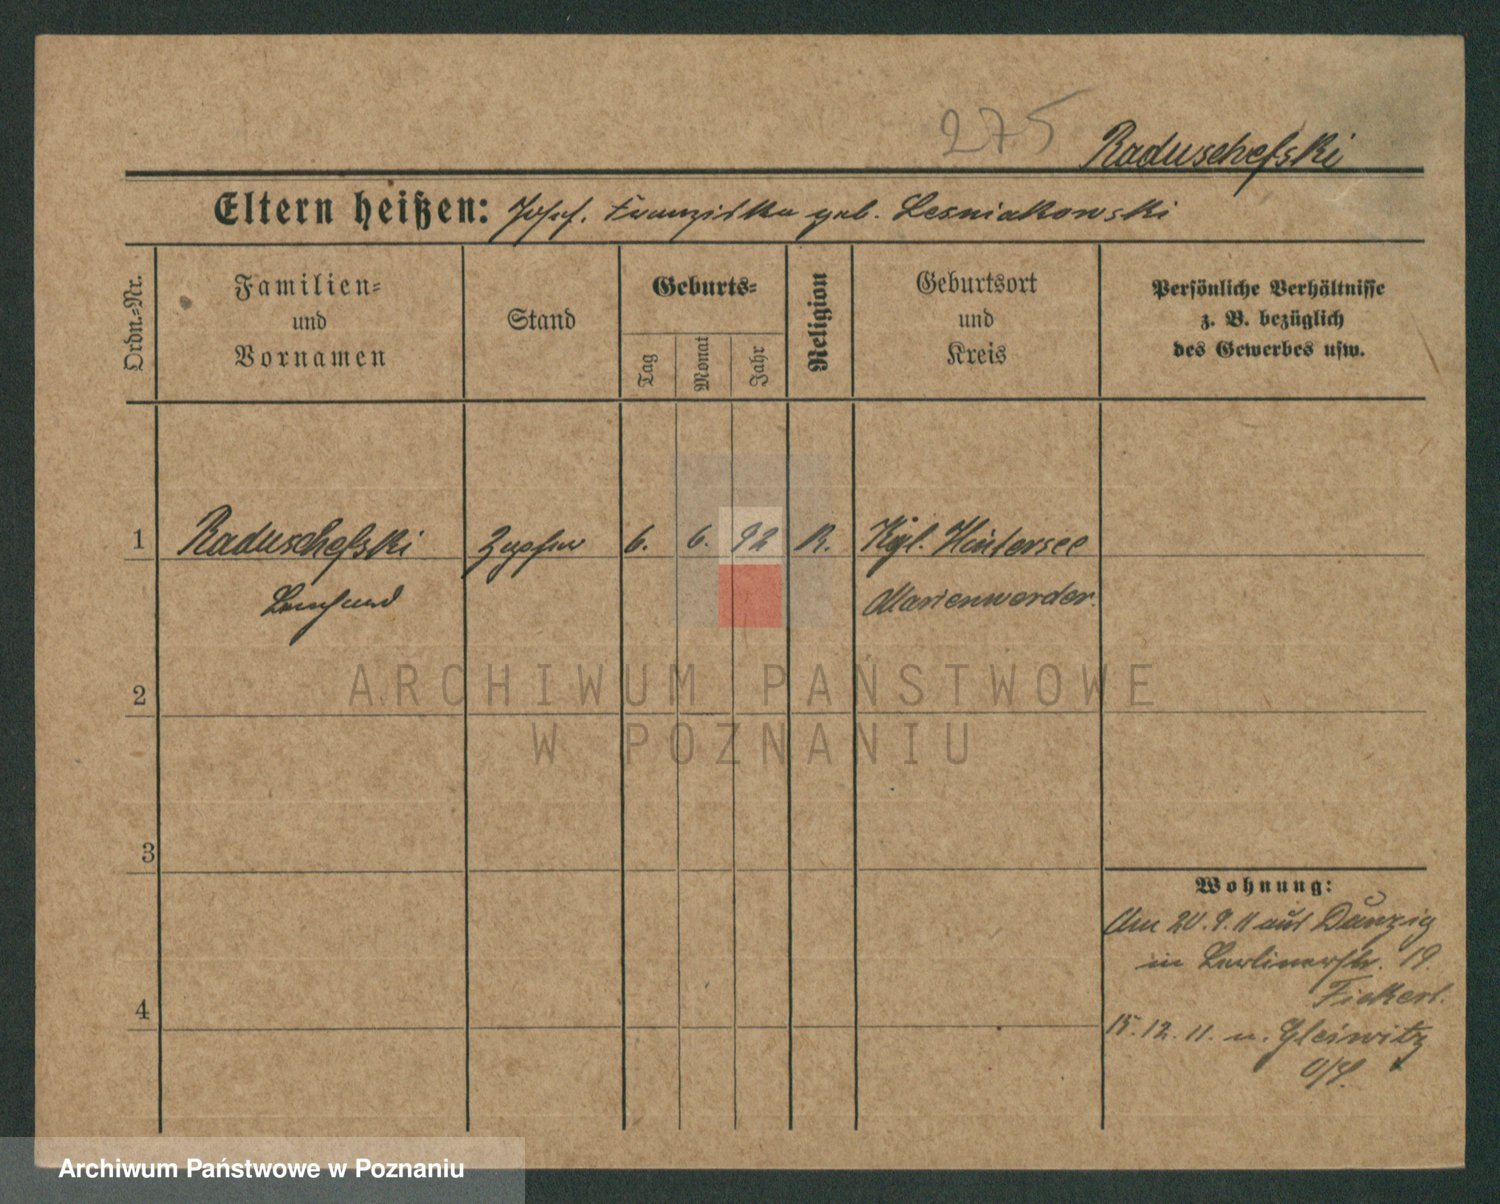 275
Raduschefski
Eltern heißen: Josef, Franziska geb. Lesniakowski
Ordn.-Nr.
Familien-
und
Vornamen
Stand
Geburts-
Tag
Monat
Jahr
Religion
Geburtsort
und
Kreis
Persönliche Verhältnisse
z. B. bezüglich
des Gewerbes usw.
1 Raduschefski 6. 6. 92 R. Kgl. Hintersee
Marienwerder.
2
ARCHIWUM PAŃSTWOWE
W POZNANIU
3
Wohnung:
Am 20.9.11 aus Danzig
in Berlinerstr. 19.
4
15.12.11. n. Gleiwitz
O/S.
Archiwum Państwowe w Poznaniu